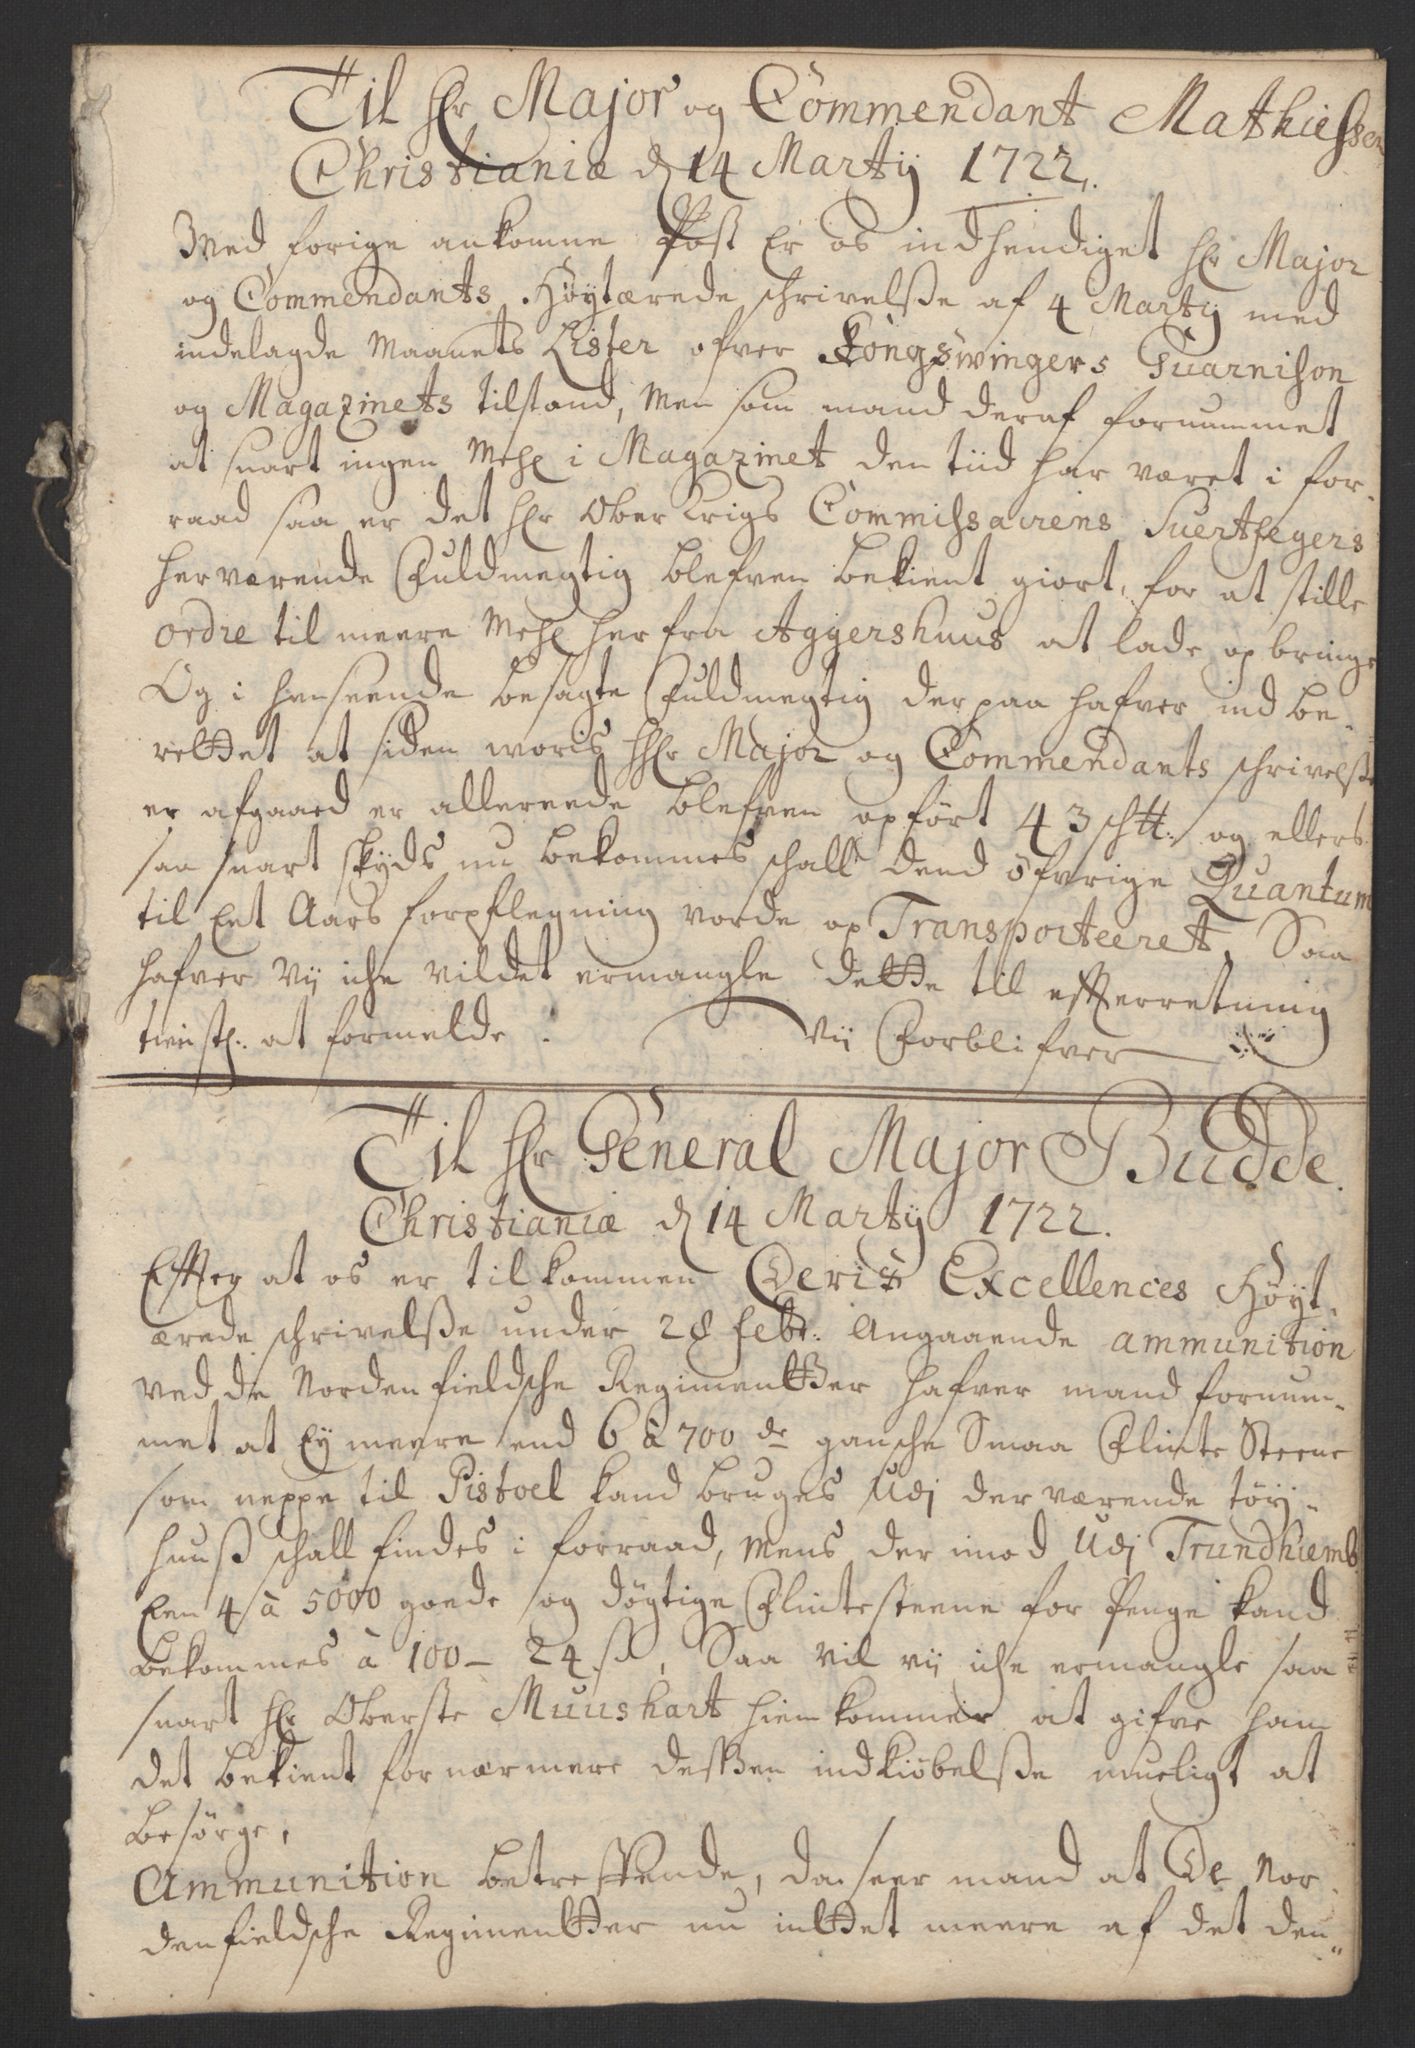 Til Hr Major og Commendant Mathiessen
Christiania d 14 Martij 1722.
Med forige ankomne Post er os indhendiget Hr Major
og Commendants Höytærede schrivelsse af 4 Martij med
indelagde Maanets Lister ofver Kongswingers Guarnison
og Magazinets tilstand, Men som mand deraf fornummet
at snart ingen Mehl i Magazinet den tiid har været i for-
raad saa er det Hr Ober Krigs Commissairens Suertfegers
herværende Fuldmegtig blefven bekient giort, for at stille
ordre til meere Mehl her fra Aggershuus at lade op bringe
Og i henseende besagte Fuldmegtig derpaa hafver ind be-
rettet at siden woris HHr Major og Commendants schrivelsse
er afgaaed er allereede blefven opfört 43 sch℔: og ellers
saa snart skyds nu bekommes schall dend öfvrige Quantum
til Eet Aars forpflegning vorde op Transporteeret, Saa
hafver Vij iche vildet ermangle dette til efterretning
at formelde. Vij Forblifver
Til Hr General Major Budde.
Christiania d 14 Martij 1722.
Efter at os er tilkommen Deris Excellences Höyt-
ærede schrivelsse under 28 febr: Angaaende ammunition
ved de Norden fieldsche Regimentter hafver mand fornum-
met at Ey meere end 6 à 700 de gansche Smaa Flinte Steene
som neppe til Pistoel kand bruges Udj der værende töy-
huuss schall findes i forraad, Mens der imod Udj Trundhiemb
Een 4 à 5000 goede og dögtige Flintesteene for Penge kand
bekommes à 100 - 24 ss, Saa vil vij iche ermangle saa
snart Hr Oberste Muushart hiem kommer at gifve ham
det bekient for nærmere dessen indkiöbelsse mueligt at
besörge,
Ammunition betreffende, da seer mand at De Nor-
denfieldsche Regimentter nu intet meere af det den"